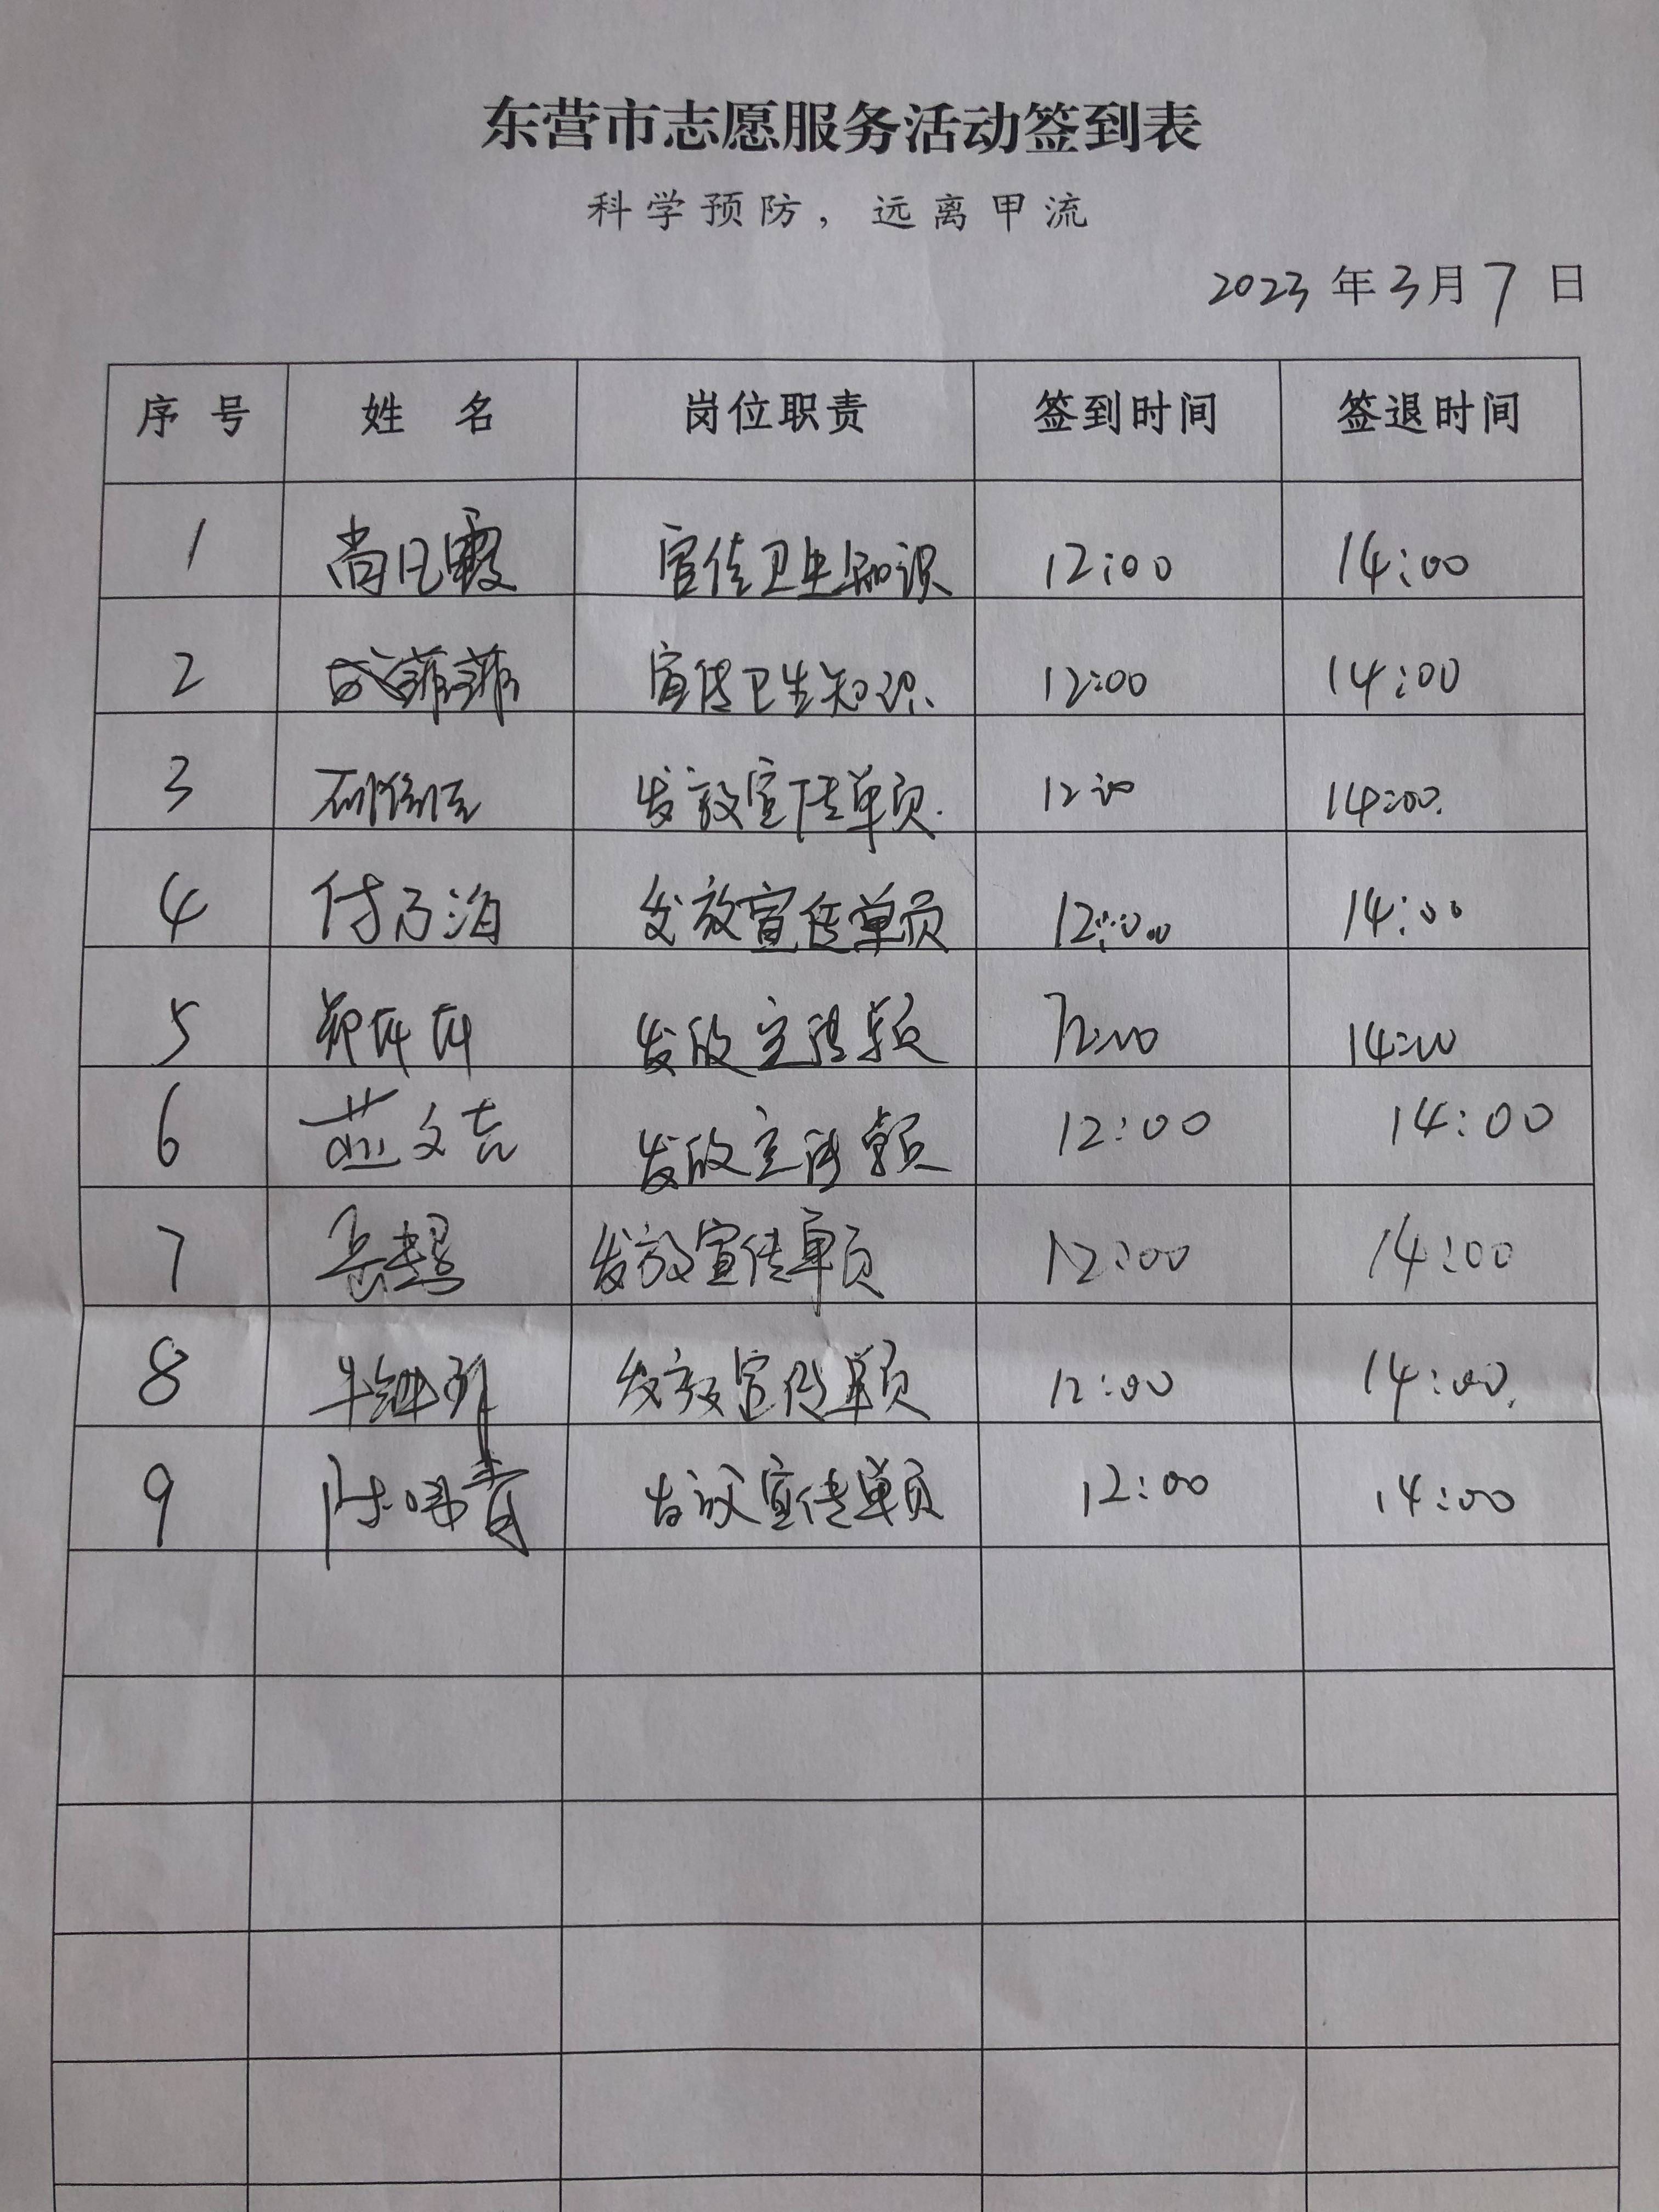 东营市志愿服务活动签到表
科学预防，远离甲流
2023 年 3 月 7 日
序 号 姓 名 岗位职责 签到时间 签退时间
1 尚凡霞 宣传卫生知识 12:00 14:00
2 成菲菲 宣传卫生知识 12:00 14:00
3 发放宣传单页 12:00 14:00
4 付乃海 发放宣传单页 12:00 14:00
5 郑 发放宣传单页 12:00 14:00
6 燕文吉 发放宣传单页 12:00 14:00
7 发放宣传单页 12:00 14:00
8 牛 发放宣传单页 12:00 14:00
9 陈 青 发放宣传单页 12:00 14:00